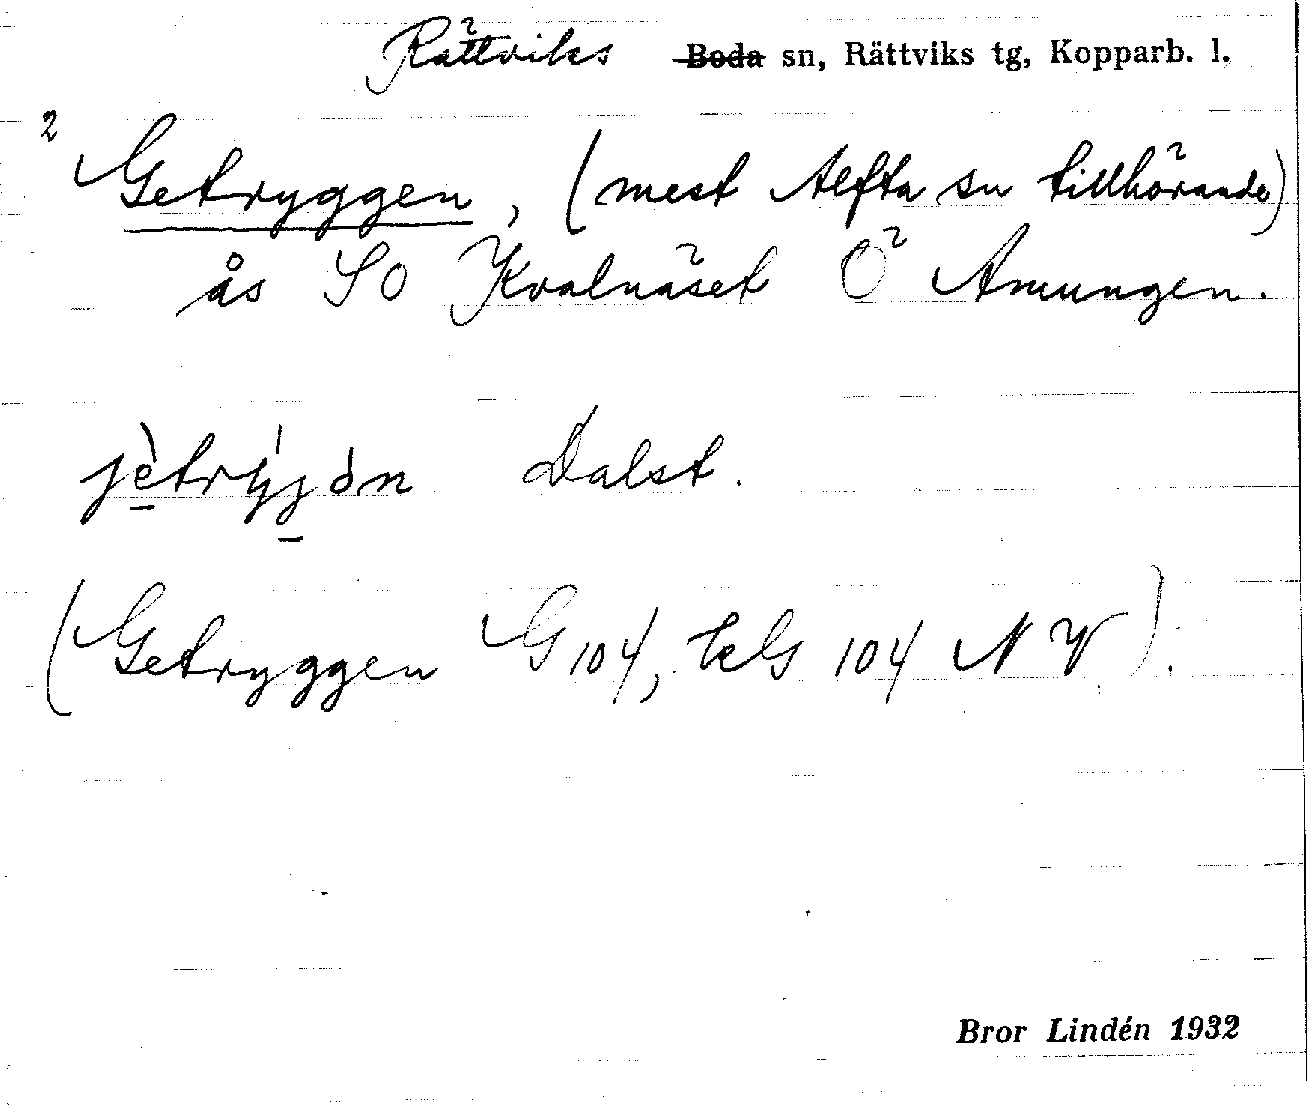 Rättviks Boda sn, Rättviks tg, Kopparb. l.
2 Getryggen, (mest Alfta sn tillhörande)
ås SO Kvalnäset Ö Amungen.
Dalst.
(Getryggen G 104, kG 104 NV).
Bror Lindén 1932